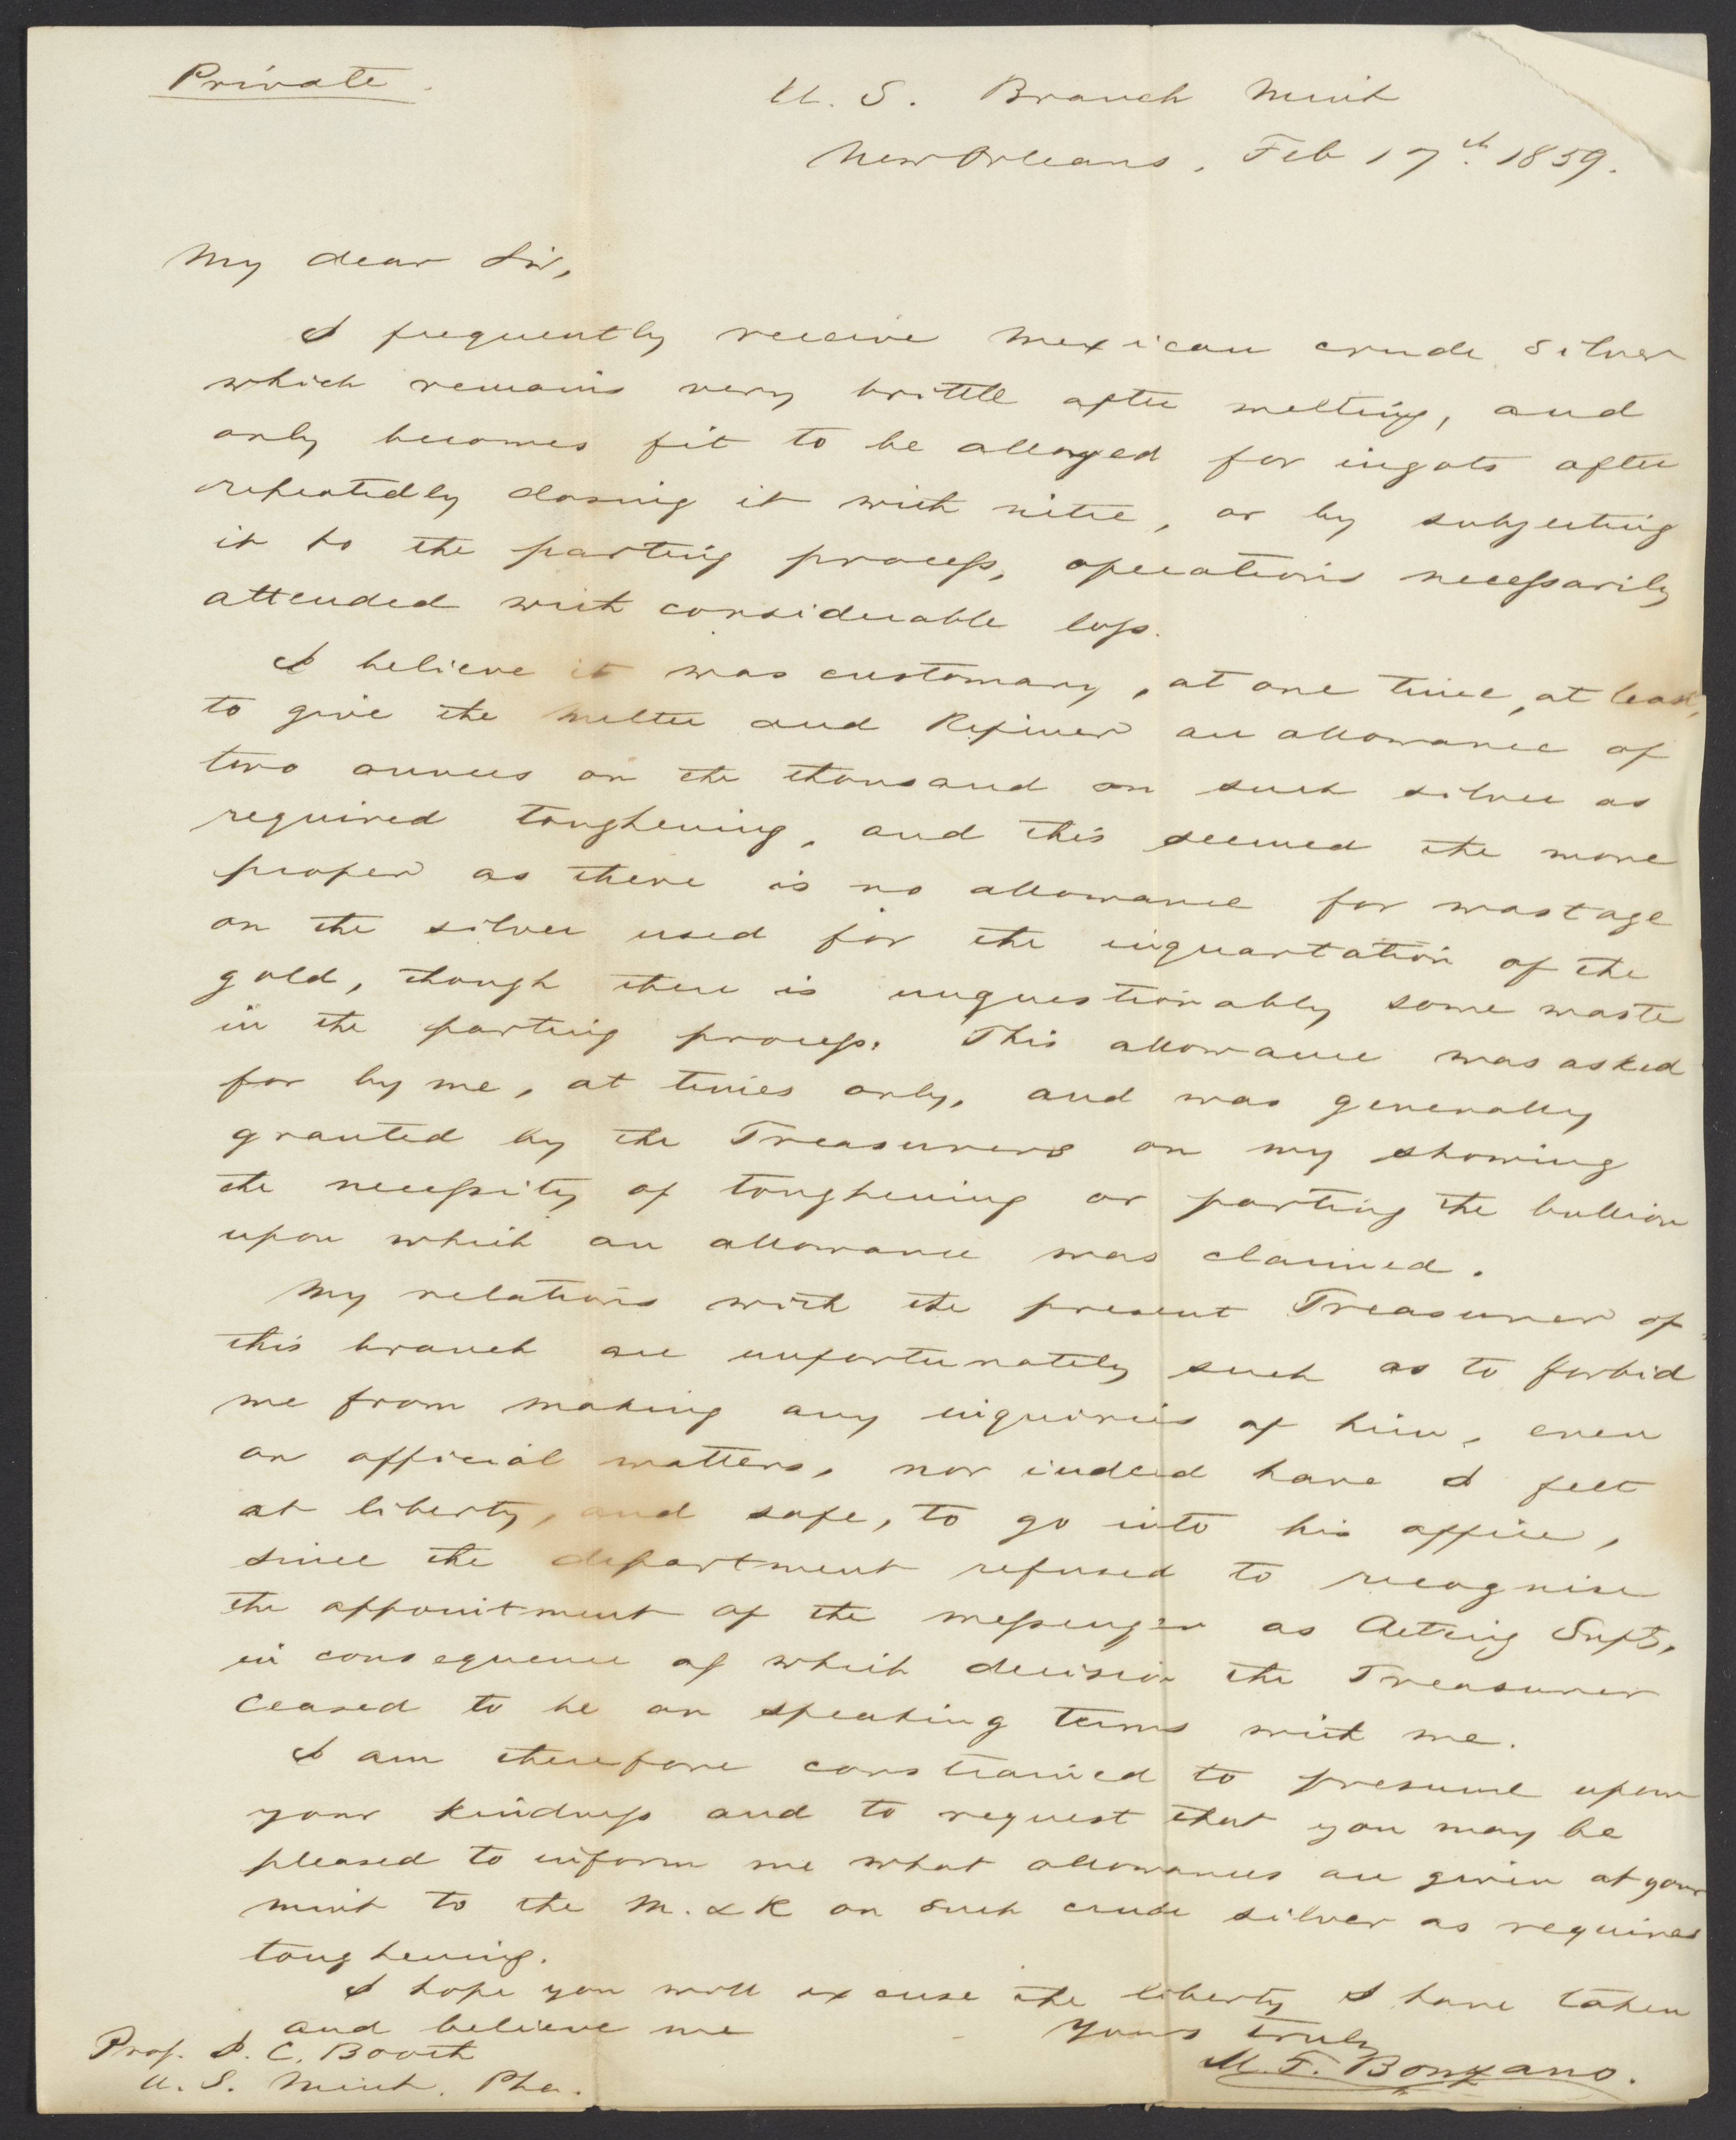 Private.
U. S. Branch Mint
New Orleans, Feb 17th 1859.
My dear Sir,
I frequently receive Mexican crude silver
which remains very brittle after melting, and
only becomes fit to be alloyed for ingots after
repeatedly dosing it with nitre, or by subjecting
it to the parting process, operations necessarily
attended with considerable loss.
I believe it was customary, at one time, at least,
to give the Melter and Refiner an allowance of
two ounces on the thousand on such silver as
required toughening, and this seemed the more
proper as there is no allowance for wastage
on the silver used for the inquartation of the
gold, though there is unquestionably some waste
in the parting process. This allowance was asked
for by me, at times only, and was generally
granted by the Treasurers on my showing
the necessity of toughening or parting the bullion
upon which an allowance was claimed.
My relations with the present Treasurer of
this branch are unfortunately such as to forbid
me from making any inquiries of him, even
on official matters, nor indeed have I felt
at liberty, and safe, to go into his office,
since the department refused to recognise
the appointment of the messenger as Acting Supt,
in consequence of which decision the Treasurer
ceased to be on speaking terms with me.
I am therefore constrained to presume upon
your kindness and to request that you may be
pleased to inform me what allowances are given at your
mint to the M. & R on such crude silver as requires
toughening.
I hope you will excuse the liberty I have taken
and believe me
Yours truly
M. F. Bonzano.
Prof. J. C. Booth
U. S. Mint. Pha.